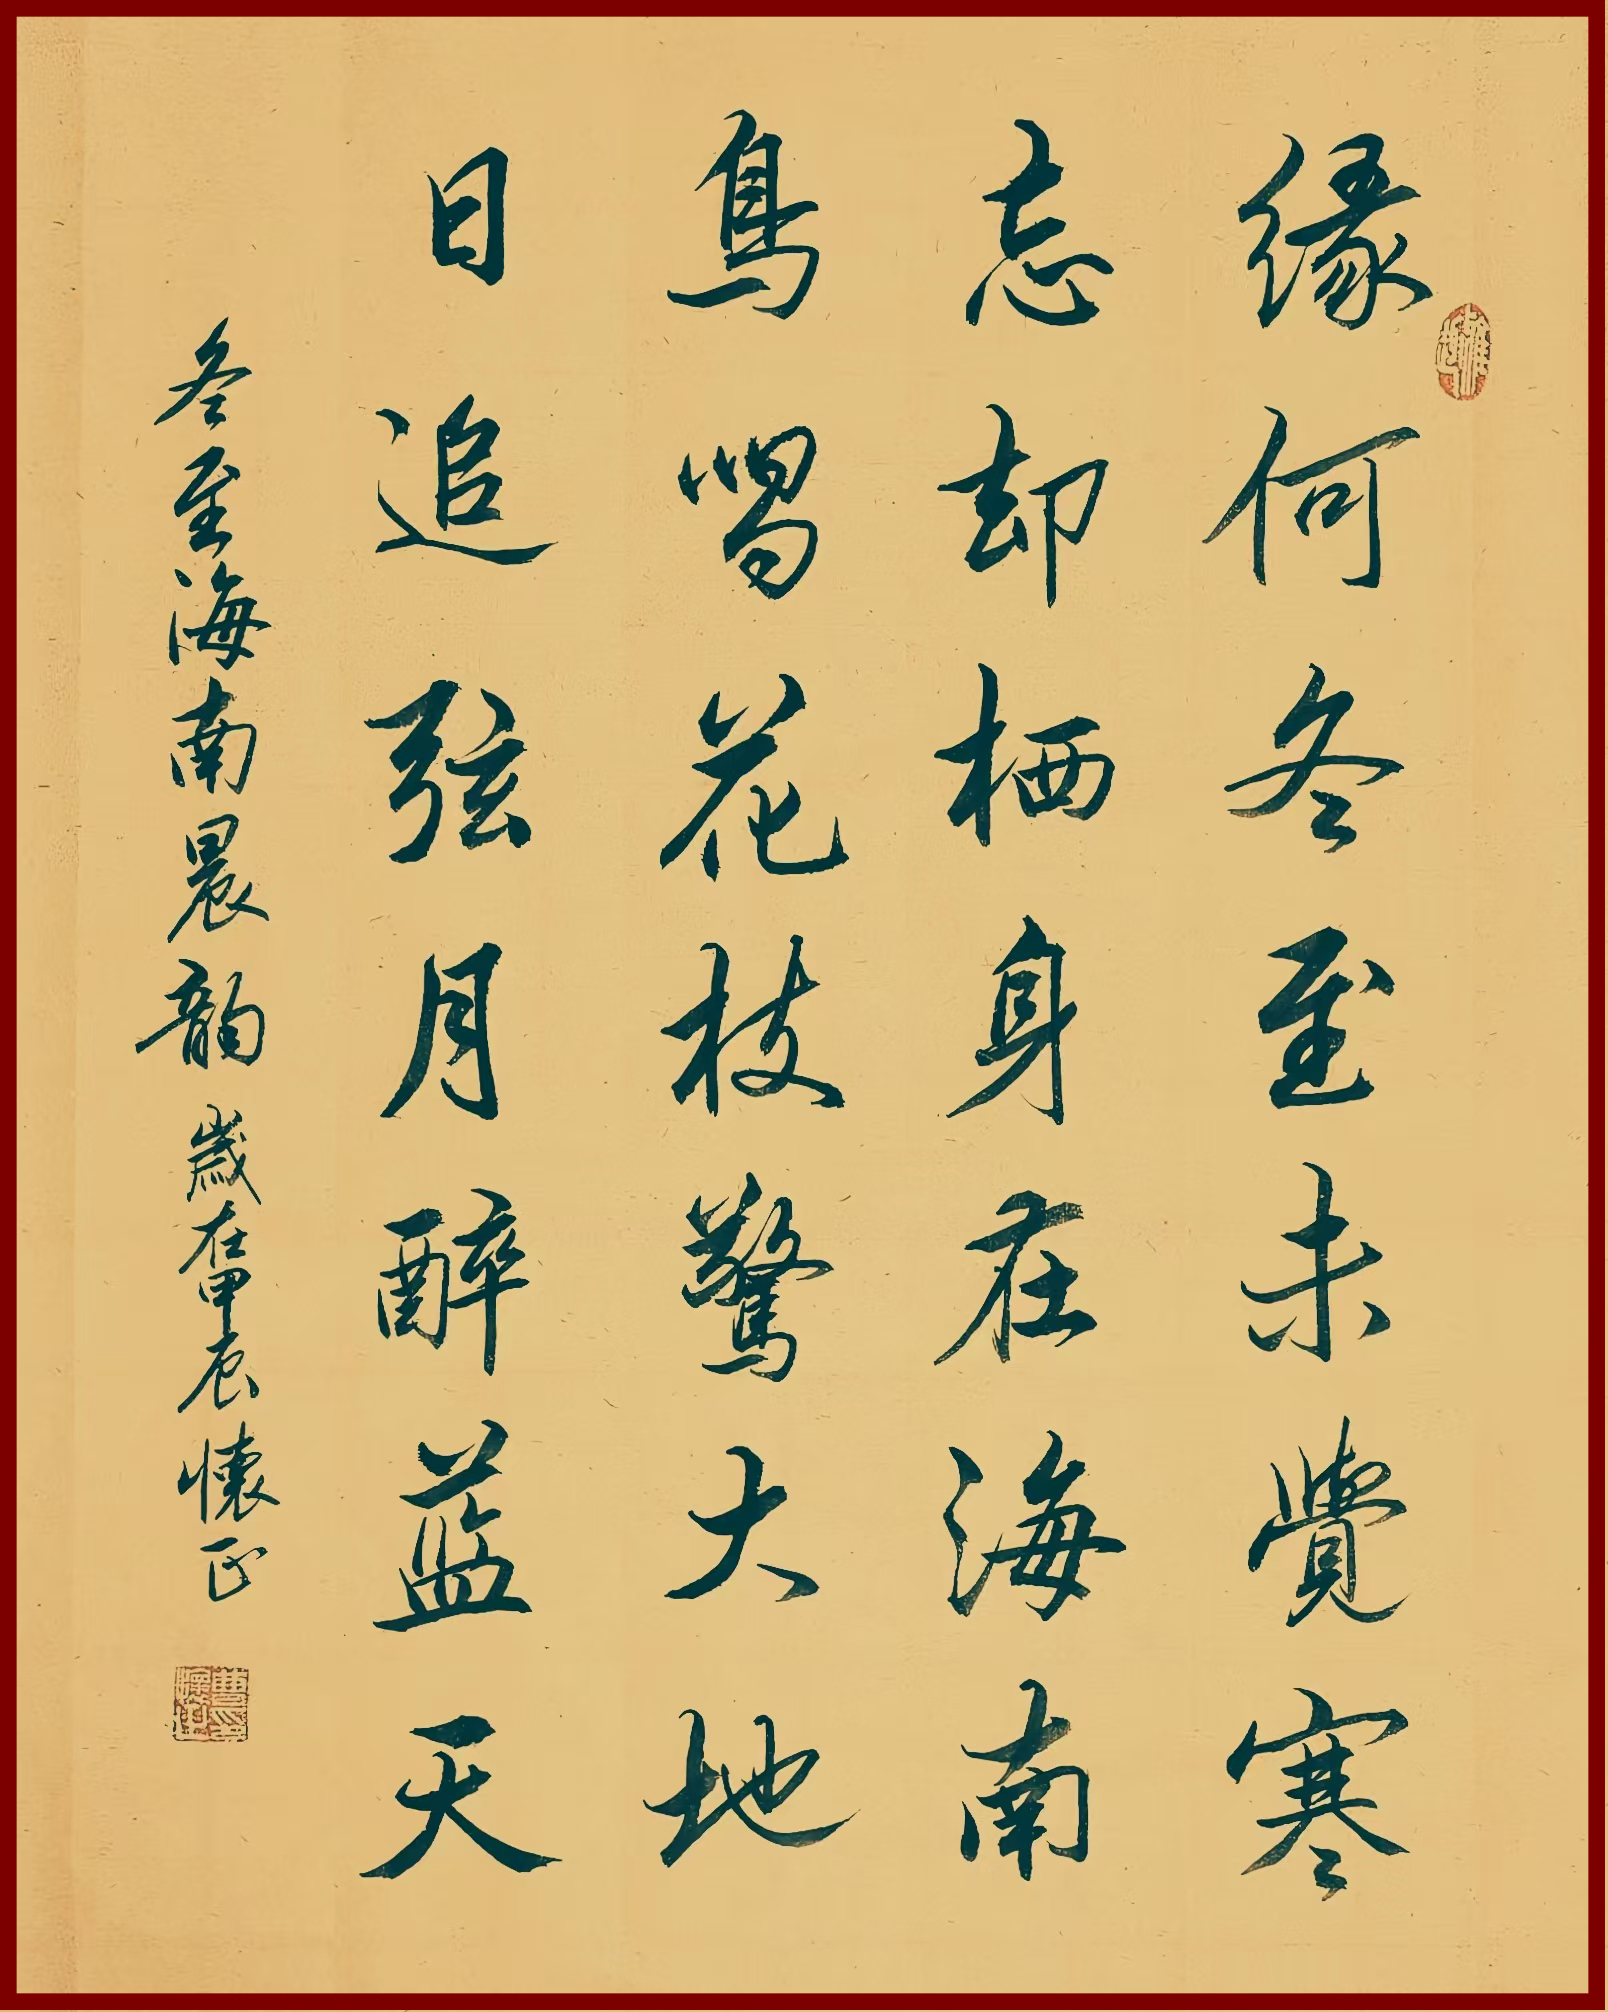 緣何冬至未覺寒
忘却栖身在海南
鳥唱花枝驚大地
日追弦月醉蓝天
冬至海南晨韵 歲在甲辰懷正